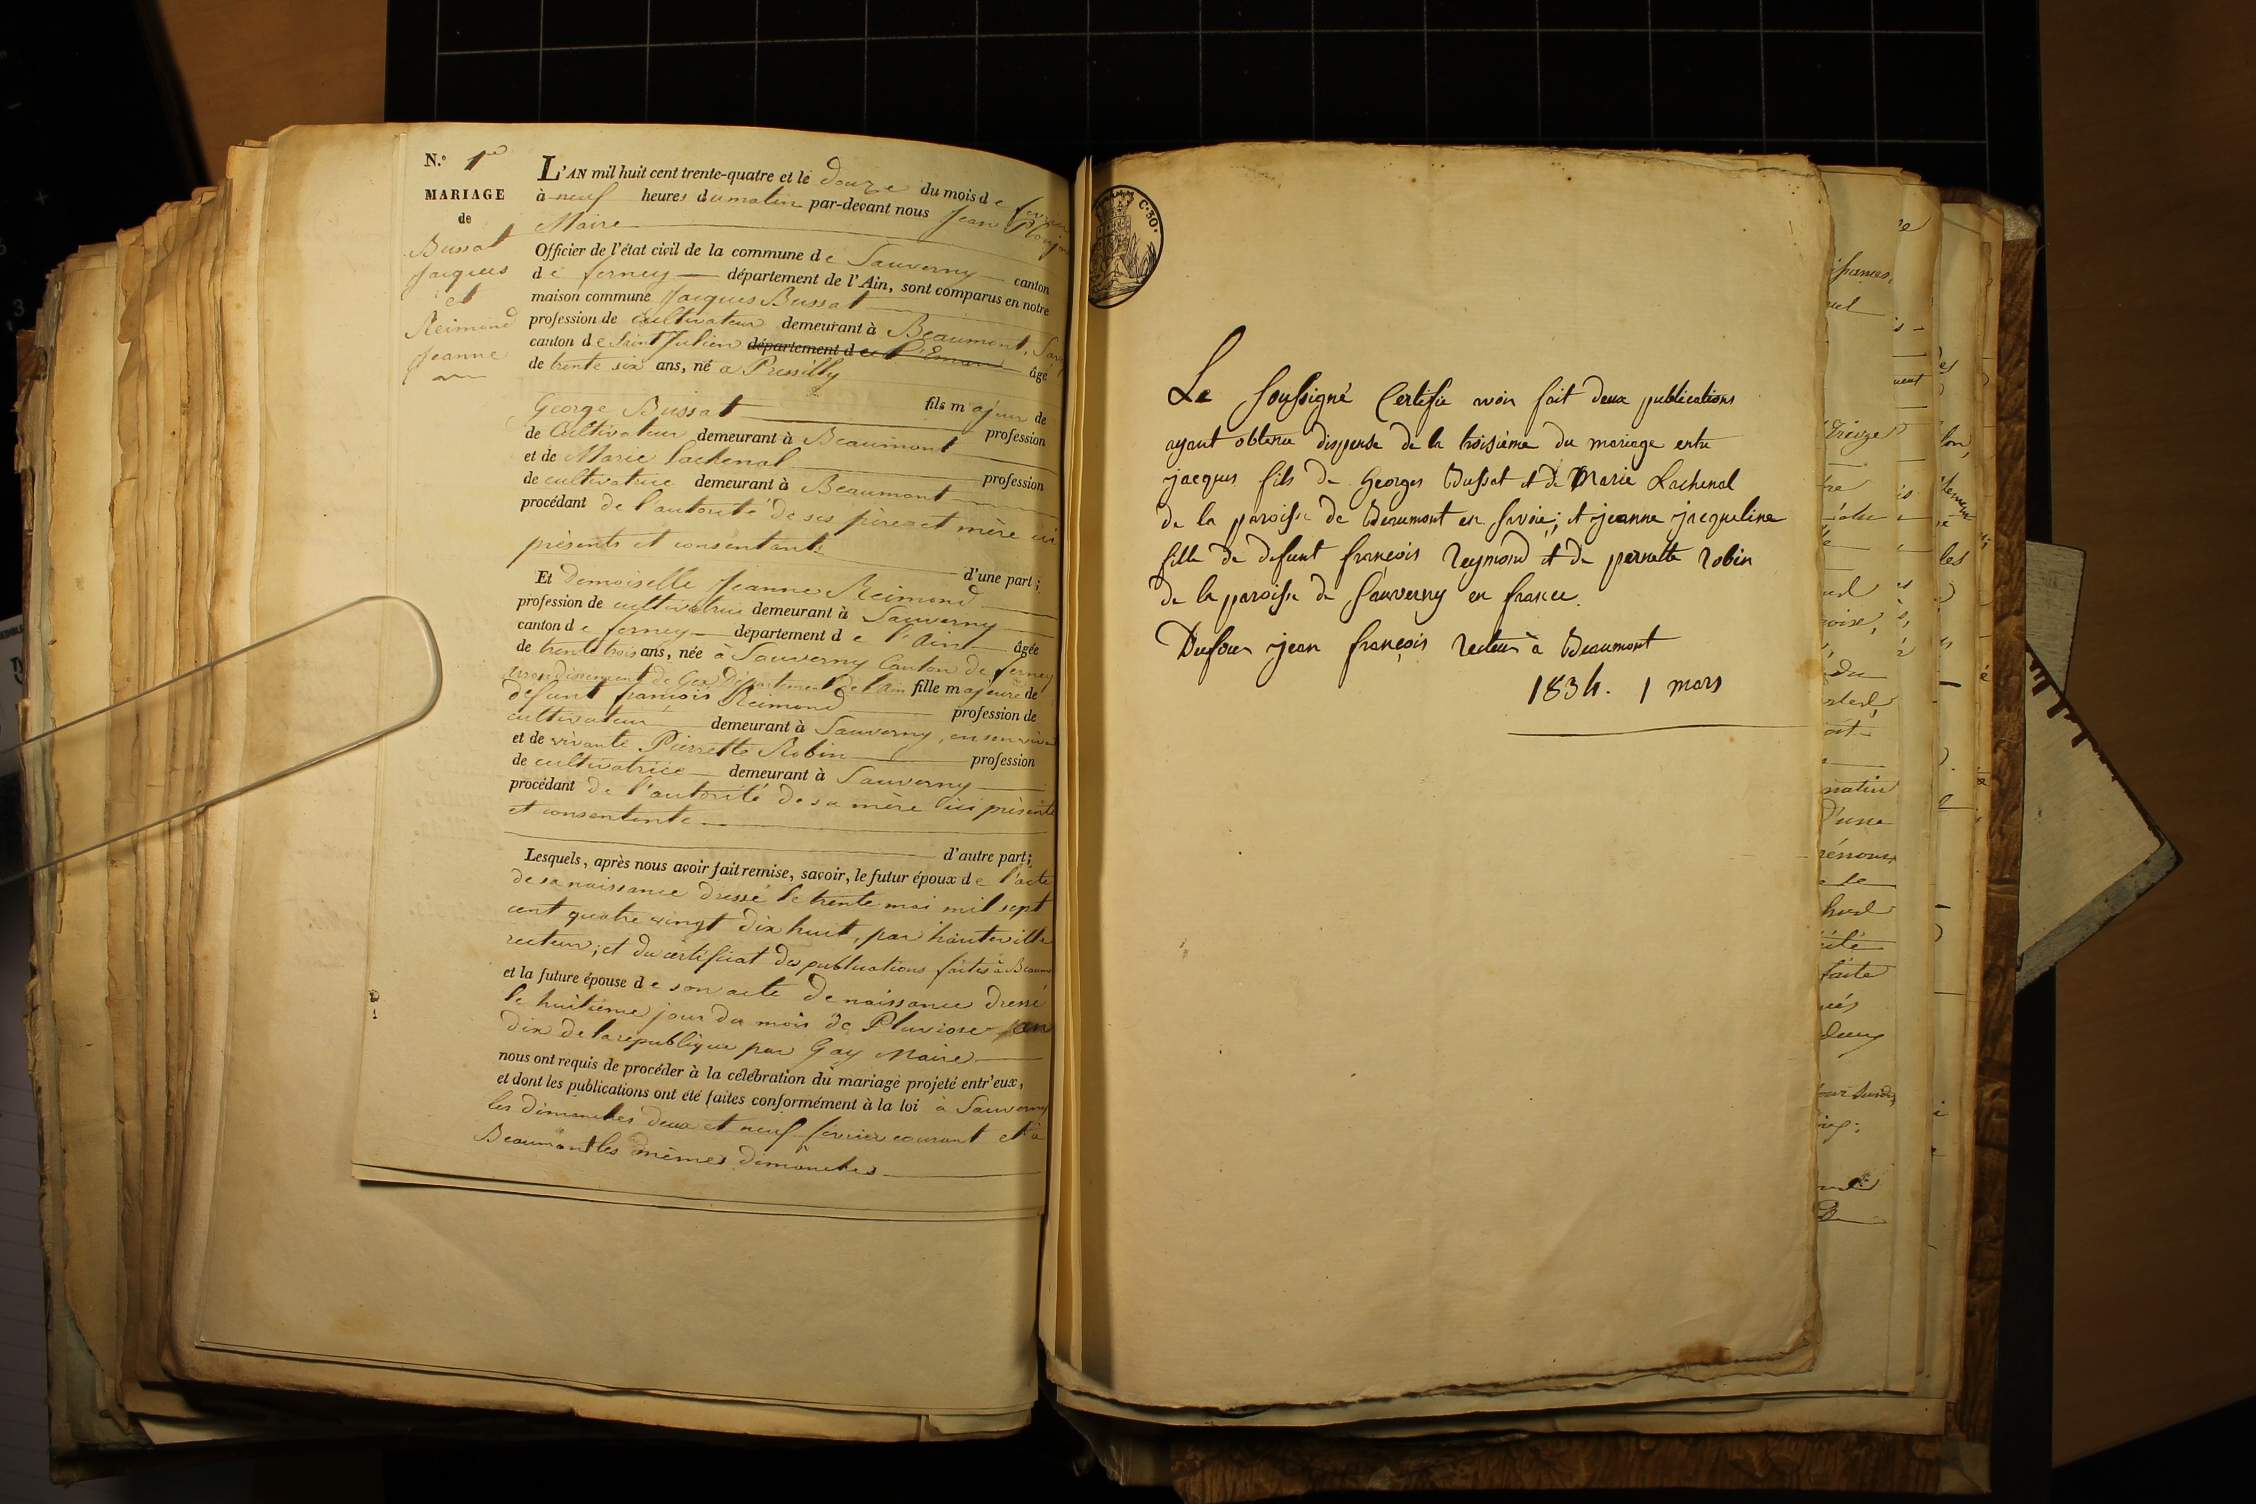 N.o 1er
MARIAGE
de
Bussat
Jacques
et
Reimond
Jeanne
L'AN mil huit cent trente-quatre et le douze du mois de fevrier
à neuf heures du matin par-devant nous Jean
Maire
Officier de l'état civil de la commune de Sauverny canton
de ferney département de l'Ain, sont comparus en notre
maison commune Jacques Bussat
profession de cultivateur demeurant à Beaumont,
canton de Saint Julien département de
âgé
de trente six ans, né à Pressilly
fils majeur de
George Bussat profession
de Cultivateur demeurant à Beaumont
et de Marie Lachenal profession
de cultivatrice demeurant à Beaumont
procédant de l'autorité de ses père et mère ici
présents et consentants
d'une part;
Et Demoiselle Jeanne Reimond
profession de cultivatrice demeurant à Sauverny
canton de ferney département de l'Ain âgée
de trente trois ans, née à Sauverny Canton de ferney
arrondissement de Gex Département de l'Ain fille majeure de
défunt francois Reimond profession de
cultivateur demeurant à Sauverny, en son vivant
et de vivante Pierrette Robin profession
de cultivatrice demeurant à Sauverny
procédant de l'autorité de sa mère ici présente
et consentente
d'autre part;
Lesquels, après nous avoir fait remise, savoir, le futur époux de l'acte
de sa naissance dressé le trente mai mil sept
cent quatre vingt dix huit, par hauteville
recteur; et du certificat des publications faites à Beaumont
et la future épouse de son acte de naissance dressé
le huitième jour du mois de Pluviose an
dix de la republique par Gay Maire
nous ont requis de procéder à la célébration du mariage projeté entr'eux,
et dont les publications ont été faites conformément à la loi à Sauverny
les dimanches deux et neuf fevrier courant et à
Beaumont les mêmes dimanches
C. 30.
Le soussigné Certifie avoir fait deux publications
ayant obtenu dispense de la troisième du mariage entre
jacques fils de Georges Bussat et de Marie Lachenal
de la paroisse de Beaumont en Savoie; et jeanne jacqueline
fille de defunt françois Reymond et de pernette Robin
de la paroisse de Sauverny en france.
Dufour jean françois recteur à Beaumont
1834. 1 mars